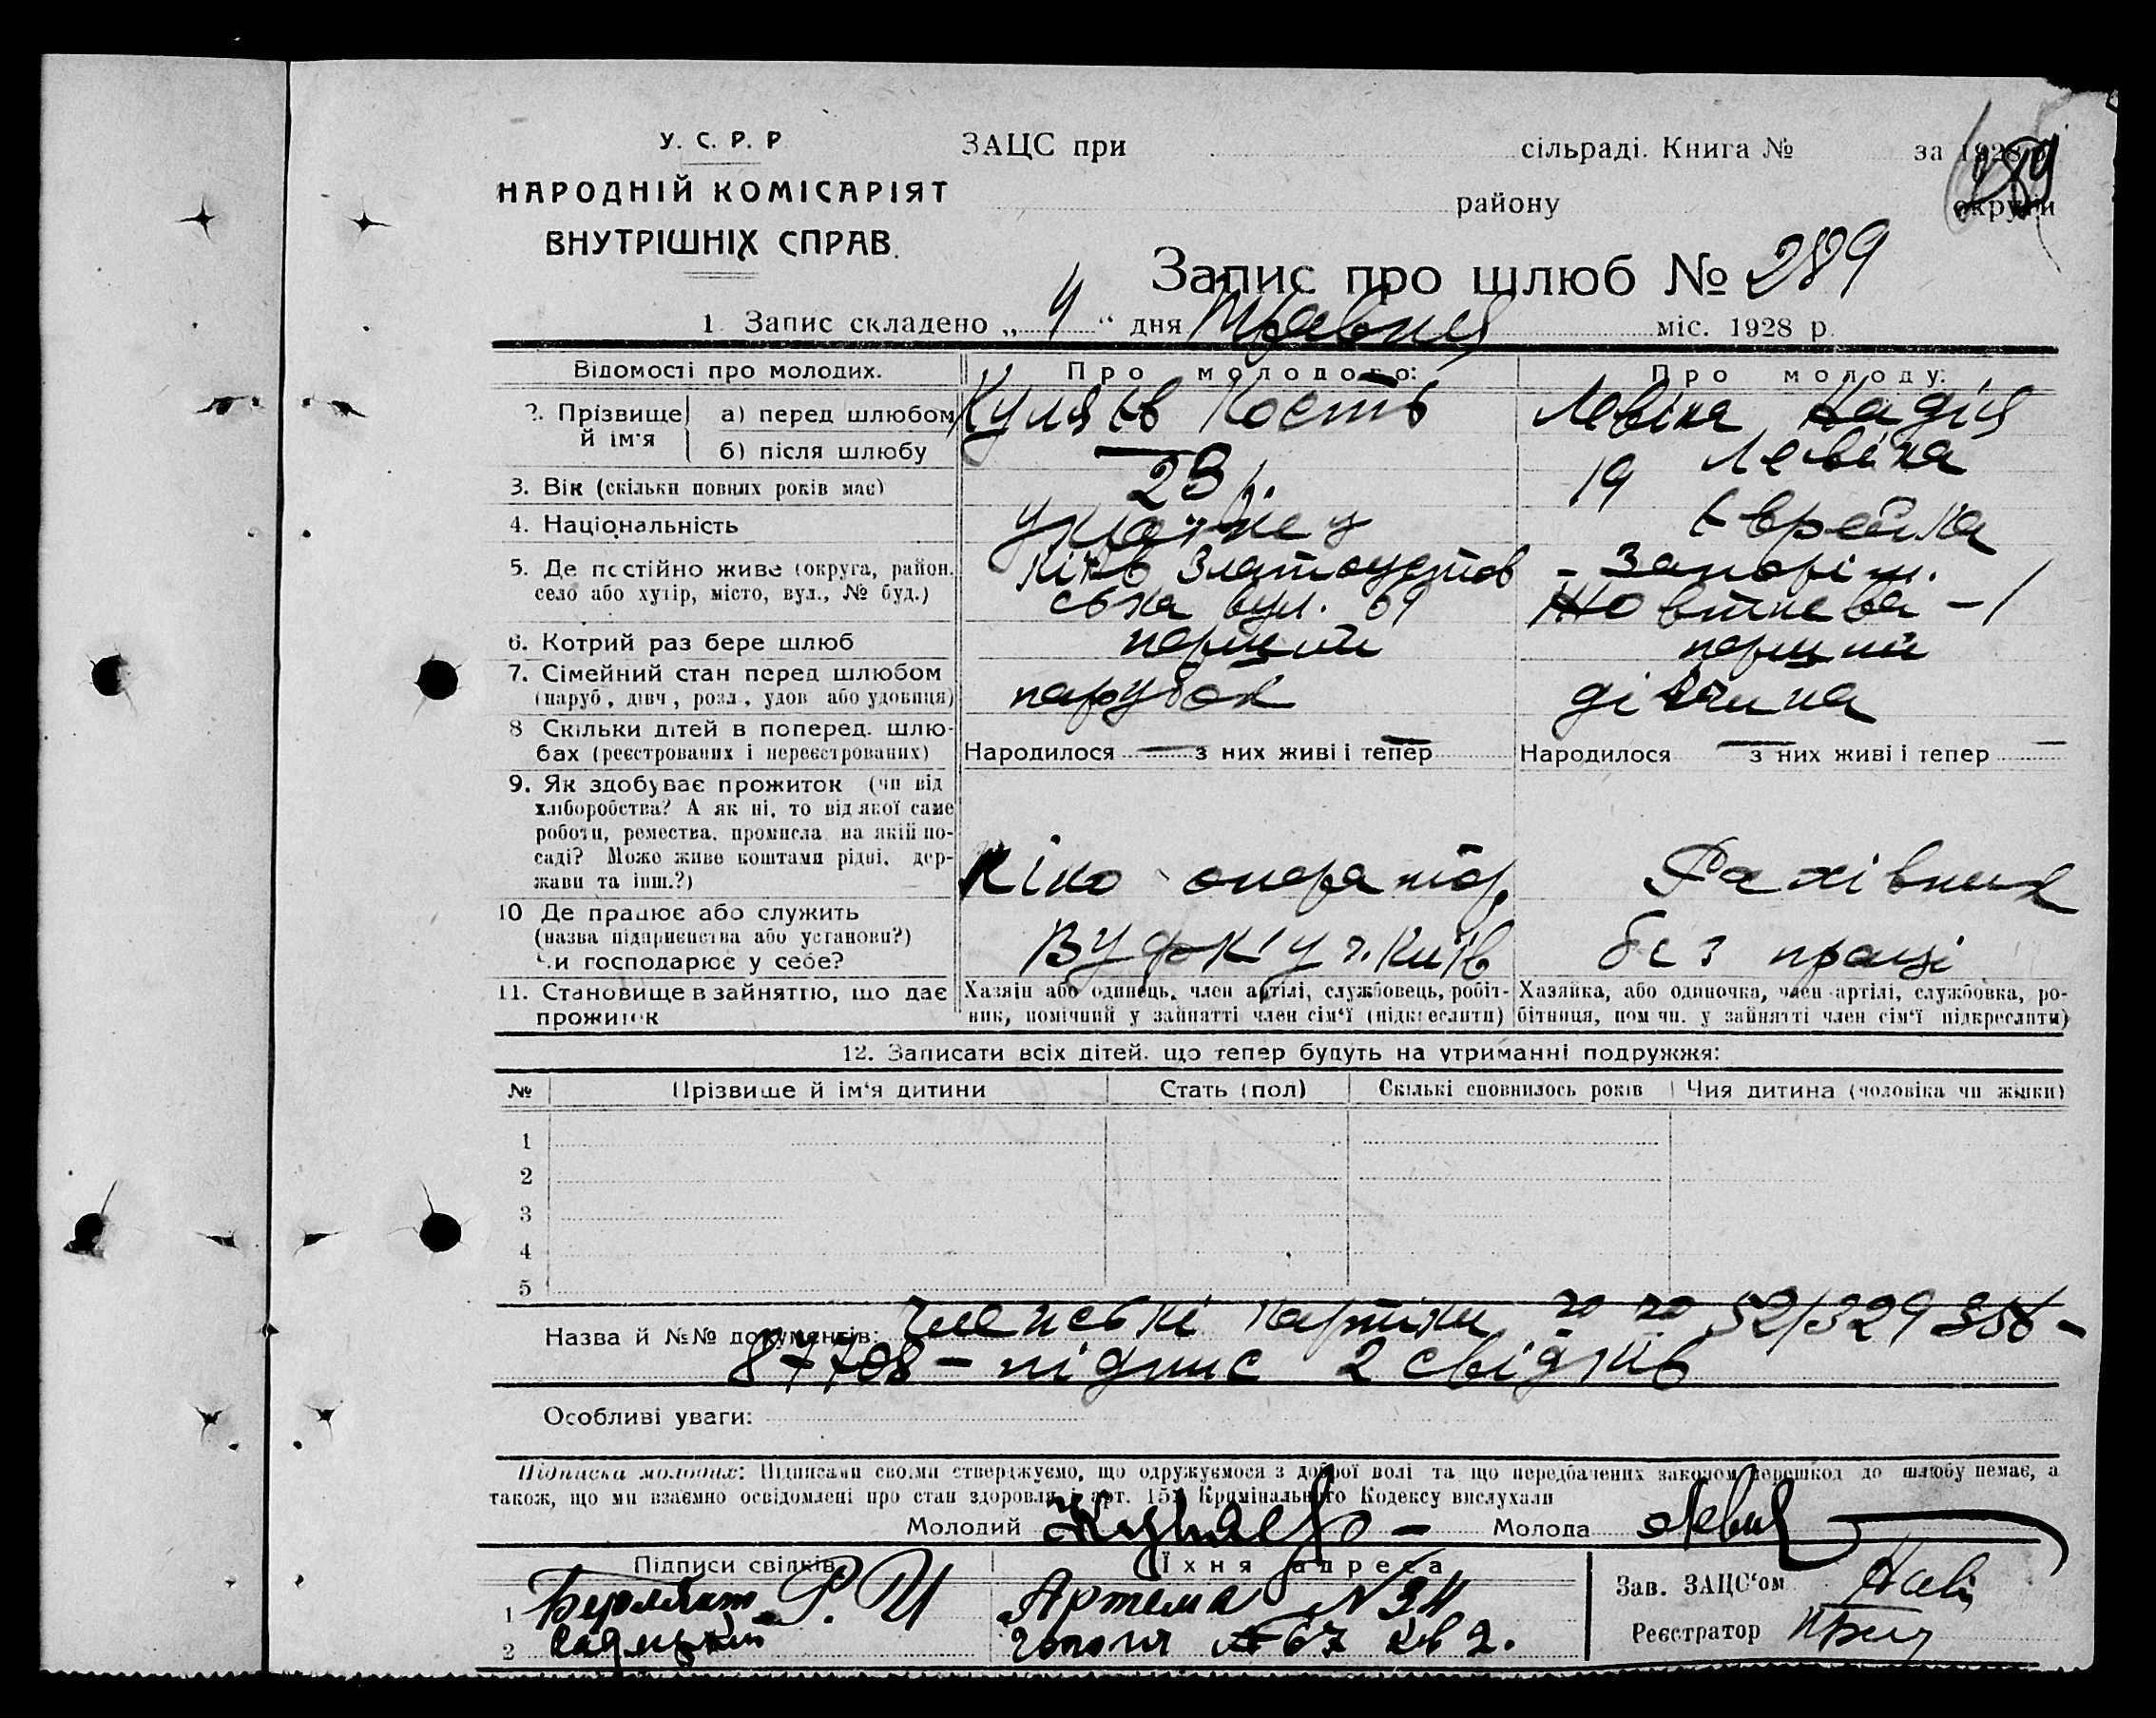 У. С. Р. Р
НАРОДНІЙ КОМІСАРІЯТ
ВНУТРІШНІХ СПРАВ.
ЗАЦС при сільраді. Книга № за 1928
району округи
289
Запис про шлюб № 289
1. Запис складено „ 4 “ дня Травня міс. 1928 р.
Відомості про молодих. Про молодого: Про молоду:
2. Прізвище й ім'я а) перед шлюбом Куляєв Кость Левіна Надія
б) після шлюбу — Левіна
3. Вік (скільки повних років має) 23 р. 19
4. Національність українець Єврейка
5. Де постійно живе (округа, район. Київ Златоустов - Запоріж.
село або хутір, місто, вул., № буд.) ська вул. 69 Жовтнева - 1
6. Котрий раз бере шлюб перший перший
7. Сімейний стан перед шлюбом
(паруб., дівч., розл., удов. або удовиця) парубок дівчина
8 Скільки дітей в поперед. шлю-
бах (реєстрованих і нереєстрованих) Народилося — з них живі і тепер — Народилося — з них живі і тепер —
9. Як здобуває прожиток (чи від
хліборобства? А як ні, то від якої саме
роботи, ремества, промисла, на якій по-
саді? Може живе коштами рідні, дер-
жави та інш.?) Кіно оператор Рахівник
10 Де працює або служить
(назва підприємства або установи?)
Чи господарює у себе? Вуфку м. Київ без праці
11. Становище в зайняттю, що дає
прожиток
Хазяін або одинець, член артілі, службовець, робіт-
ник, помічний у зайнятті член сім'ї (підкреслити)
Хазяйка, або одиночка, член артілі, службовка, ро-
бітниця, пом чн. у зайнятті член сім'ї підкреслити)
12. Записати всіх дітей, що тепер будуть на утриманні подружжя:
№ Прізвище й ім'я дитини Стать (пол) Скількі сповнилось років Чия дитина (чоловіка чи жінки)
1
2
3
4
5
Назва й №№ документів: Членські картки 52/329 358 -
87708 - підпис 2 свідків
Особливі уваги:
Підписка молодих: Підписами своїми стверджуємо, що одружуємося з доброї волі та що передбачених законом перешкод до шлюбу немає, а
також, що ми взаємно освідомлені про стан здоровля і арт. 15 Кримінального Кодексу вислухали
Молодий Куляев - Молода Левін
Підписи свідків Їхня адреса
1 Р. И Артема № 34
2 № 67 кв 2.
Зав. ЗАЦС'ом
Реєстратор